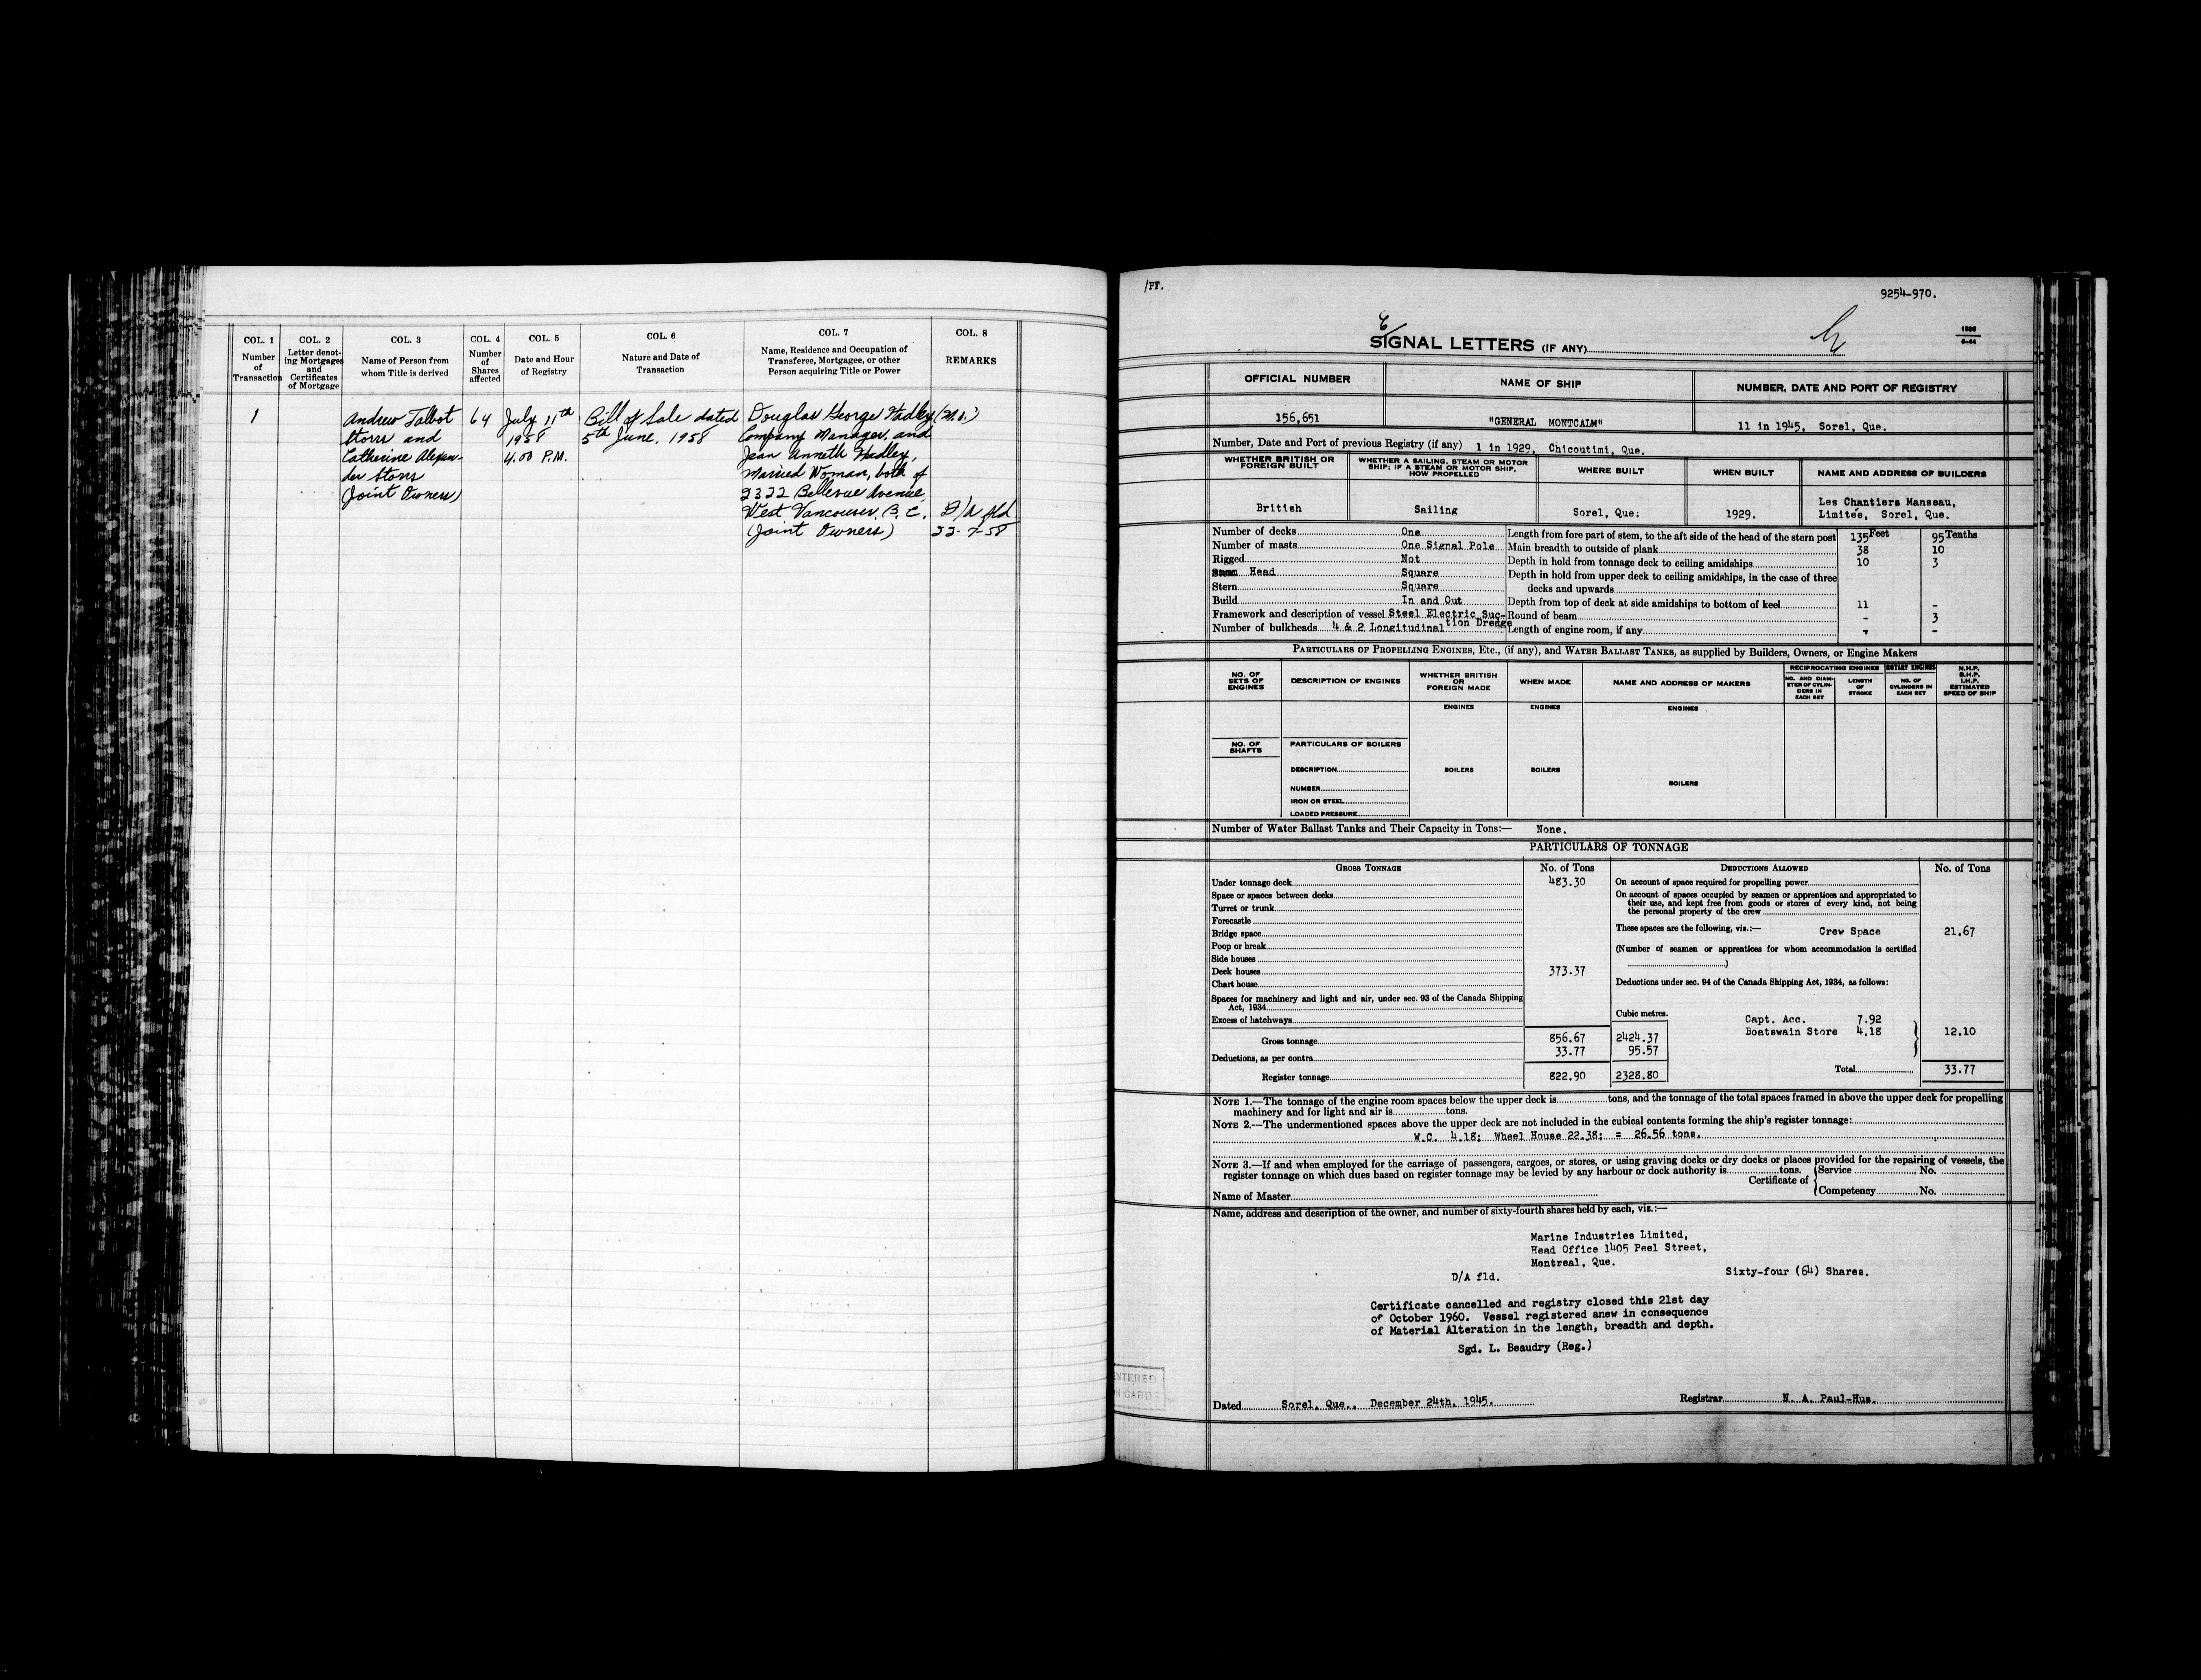 COL. 1
Number
of
Transaction
COL. 2
Letter denot-
ing Mortgages
and
Certificates
of Mortgage
COL. 3
Name of Person from
whom Title is derived
COL. 4
Number
of
Shares
affected
COL. 5
Date and Hour
of Registry
COL. 6
Nature and Date of
Transaction
COL. 7
Name, Residence and Occupation of
Transferee, Mortgagee, or other
Person acquiring Title or Power
COL. 8
REMARKS
1
Andrew Talbot
Storrs and
Catherine Alexan-
der Storrs
(Joint Owners)
64
July 11th
1958
4.00 P.M.
Bill of Sale dated
5th June, 1958
Douglas George
Company Manager, and
Jean Anneth
Married Woman, both of
2322 Bellevue Avenue,
West Vancouver, B.C.
(Joint Owners)
D/A fld
22-7-58
/PF.
9254-970.
SIGNAL LETTERS (IF ANY)
OFFICIAL NUMBER
NAME OF SHIP
NUMBER, DATE AND PORT OF REGISTRY
156,651
"GENERAL MONTCALM"
11 in 1945, Sorel, Que.
Number, Date and Port of previous Registry (if any) 1 in 1929, Chicoutimi, Que.
WHETHER BRITISH OR
FOREIGN BUILT
WHETHER A SAILING, STEAM OR MOTOR
SHIP; IF A STEAM OR MOTOR SHIP,
HOW PROPELLED
WHERE BUILT
WHEN BUILT
NAME AND ADDRESS OF BUILDERS
British
Sailing
Sorel, Que:
1929.
Les Chantiers Manseau,
Limitée, Sorel, Que.
Number of decks One
Number of masts One Signal Pole
Rigged Not
Head Square
Stern Square
Build In and Out
Framework and description of vessel Steel Electric Suc-
tion Dredge
Number of bulkheads 4 & 2 Longitudinal
Feet Tenths
Length from fore part of stem, to the aft side of the head of the stern post 135 95
Main breadth to outside of plank 38 10
Depth in hold from tonnage deck to ceiling amidships 10 3
Depth in hold from upper deck to ceiling amidships, in the case of three
decks and upwards
Depth from top of deck at side amidships to bottom of keel 11 -
Round of beam - 3
Length of engine room, if any - -
PARTICULARS OF PROPELLING ENGINES, ETC., (if any), and WATER BALLAST TANKS, as supplied by Builders, Owners, or Engine Makers
NO. OF
SETS OF
ENGINES
DESCRIPTION OF ENGINES
WHETHER BRITISH
OR
FOREIGN MADE
WHEN MADE
NAME AND ADDRESS OF MAKERS
RECIPROCATING ENGINES
NO. AND DIAM-
ETER OF CYLIN-
DERS IN
EACH SET
LENGTH
OF
STROKE
ROTARY ENGINES
NO. OF
CYLINDERS IN
EACH SET
N.H.P.
B.H.P.
I.H.P.
ESTIMATED
SPEED OF SHIP
ENGINES
ENGINES
ENGINES
NO. OF
SHAFTS
PARTICULARS OF BOILERS
DESCRIPTION
BOILERS
BOILERS
BOILERS
NUMBER
IRON OR STEEL
LOADED PRESSURE
Number of Water Ballast Tanks and Their Capacity in Tons:— None.
PARTICULARS OF TONNAGE
GROSS TONNAGE
No. of Tons
Under tonnage deck 483.30
Space or spaces between decks
Turret or trunk
Forecastle
Bridge space
Poop or break
Side houses
Deck houses 373.37
Chart house
Spaces for machinery and light and air, under sec. 93 of the Canada Shipping
Act, 1934
Excess of hatchways
Cubic metres.
Gross tonnage 856.67 2424.37
Deductions, as per contra 33.77 95.57
Register tonnage 822.90 2328.80
DEDUCTIONS ALLOWED
No. of Tons
On account of space required for propelling power
On account of spaces occupied by seamen or apprentices and appropriated to
their use, and kept free from goods or stores of every kind, not being
the personal property of the crew
These spaces are the following, viz.:— Crew Space 21.67
(Number of seamen or apprentices for whom accommodation is certified
)
Deductions under sec. 94 of the Canada Shipping Act, 1934, as follows:
Capt. Acc. 7.92
Boatswain Store 4.18 12.10
Total 33.77
NOTE 1.—The tonnage of the engine room spaces below the upper deck is tons, and the tonnage of the total spaces framed in above the upper deck for propelling
machinery and for light and air is tons.
NOTE 2.—The undermentioned spaces above the upper deck are not included in the cubical contents forming the ship's register tonnage:
W.C. 4.18; Wheel House 22.38; = 26.56 tons.
NOTE 3.—If and when employed for the carriage of passengers, cargoes, or stores, or using graving docks or dry docks or places provided for the repairing of vessels, the
register tonnage on which dues based on register tonnage may be levied by any harbour or dock authority is tons.
Certificate of Service No.
Competency No.
Name of Master
Name, address and description of the owner, and number of sixty-fourth shares held by each, viz.:—
Marine Industries Limited,
Head Office 1405 Peel Street,
Montreal, Que.
D/A fld. Sixty-four (64) Shares.
Certificate cancelled and registry closed this 21st day
of October 1960. Vessel registered anew in consequence
of Material Alteration in the length, breadth and depth.
Sgd. L. Beaudry (Reg.)
Dated Sorel, Que., December 24th, 1945.
Registrar N. A. Paul-Hus.